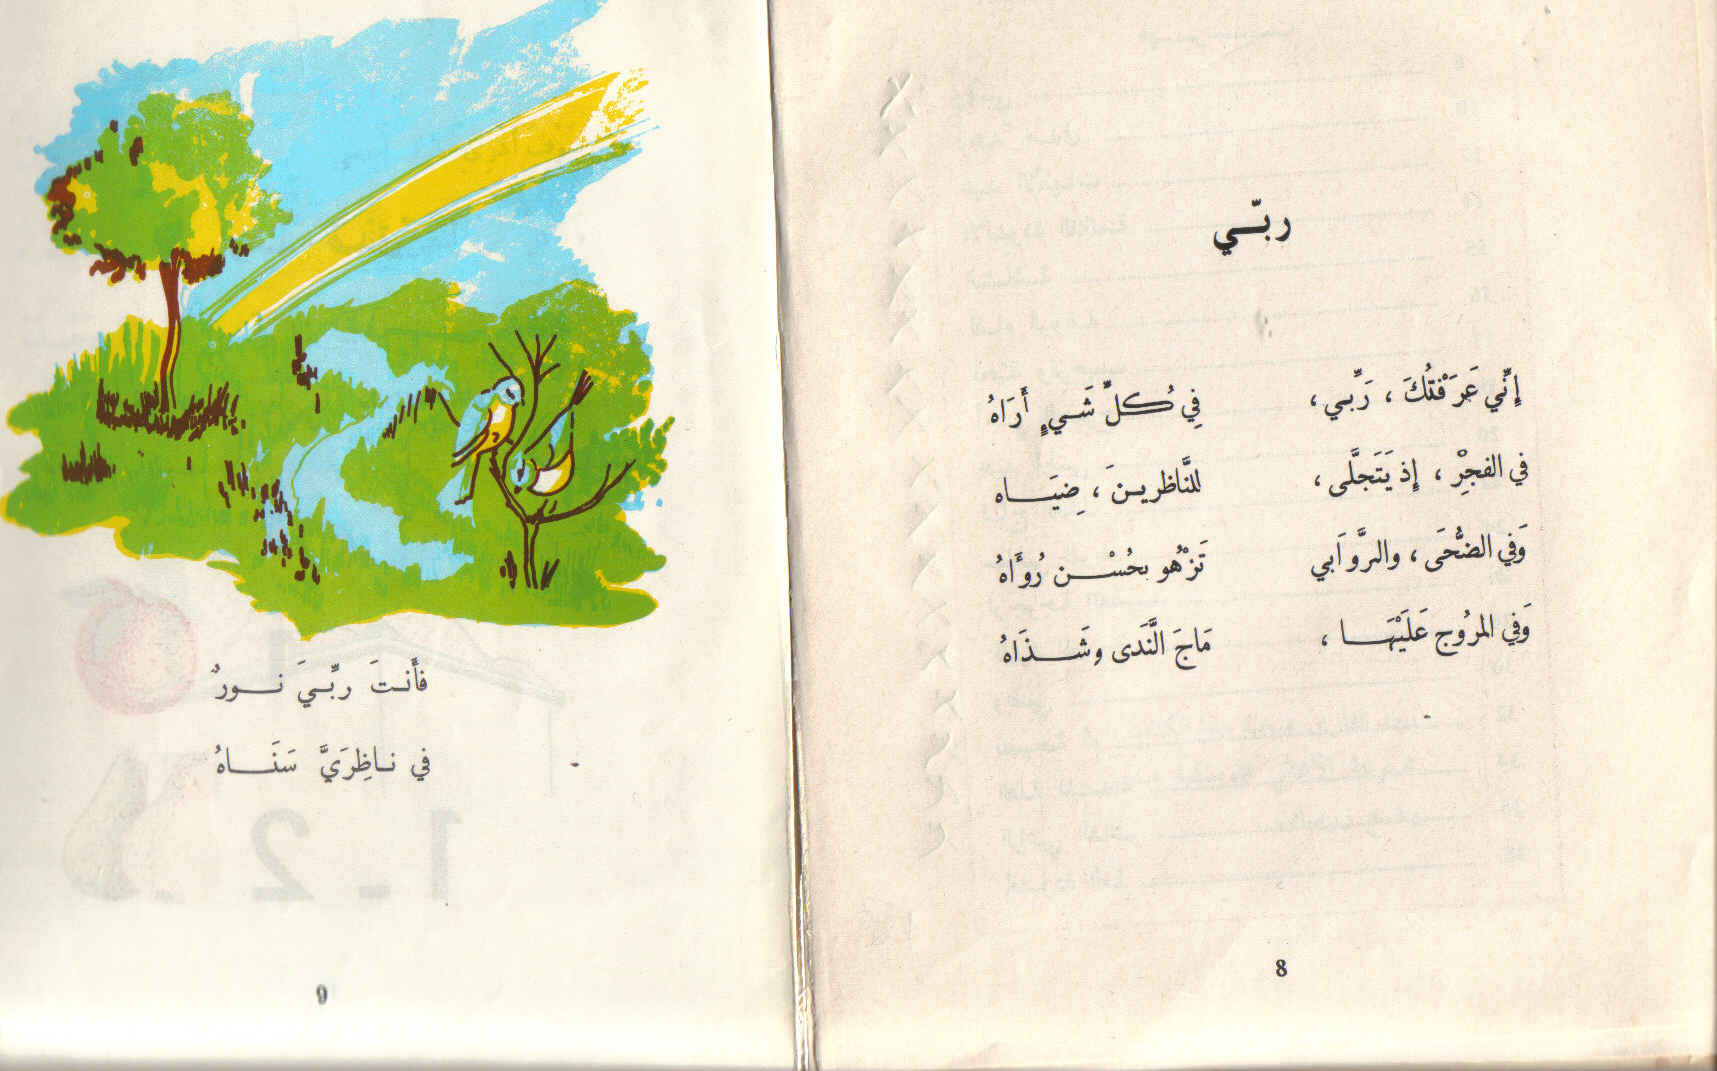 ربّي
إِنِّي عَرَفْتُكَ ، رَبِّي ، فِي كُلِّ شَيءٍ أَرَاهُ
في الفجْرِ ، إِذ يَتَجلَّى ، للنَّاظرينَ ، ضِيَاه
وَفي الضُّحَى ، والرَّوَابي تَزْهُو بحُسْن رُوَاهُ
وَفي المرُوج عَلَيْهَا ، مَاجَ النَّدَى وشَذَاهُ
8
فأَنتَ ربِّيَ نورٌ
في ناظِرَيَّ سَنَاهُ
9